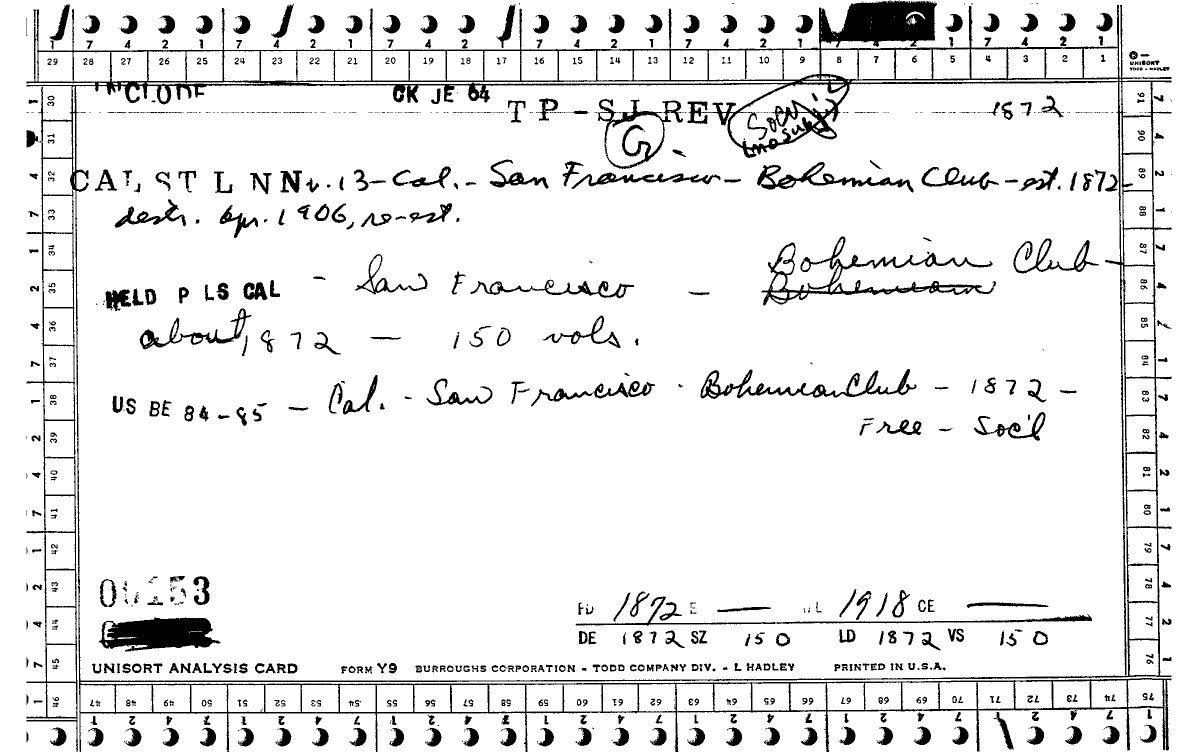 1 7 4 2 1 7 4 2 1 7 4 2 1 7 4 2 1 7 4 2 1 7 4 2 1 7 4 2 1
29 28 27 26 25 24 23 22 21 20 19 18 17 16 15 14 13 12 11 10 9 8 7 6 5 4 3 2 1
UNISORT
TODD - HADLEY
INCLUDE CK JE 64
TP - SJ REV Soc'l 1872
G
CAL ST L NN Nv. 13 - Cal. - San Francisco - Bohemian Club - est. 1872 -
destr. Apr. 1906, re-est.
Bohemian Club -
HELD P LS CAL - San Francisco - Bohemian
about 1872 - 150 vols.
US BE 84-85 - Cal. - San Francisco - Bohemian Club - 1872 -
Free - Soc'l
00153
FD 1872 E — 1918 CE —
DE 1872 SZ 150 LD 1872 VS 150
UNISORT ANALYSIS CARD FORM Y9 BURROUGHS CORPORATION - TODD COMPANY DIV. - L HADLEY PRINTED IN U.S.A.
30 31 32 33 34 35 36 37 38 39 40 41 42 43 44 45 46
91 90 89 88 87 86 85 84 83 82 81 80 79 78 77 76
47 48 49 50 51 52 53 54 55 56 57 58 59 60 61 62 63 64 65 66 67 68 69 70 71 72 73 74 75